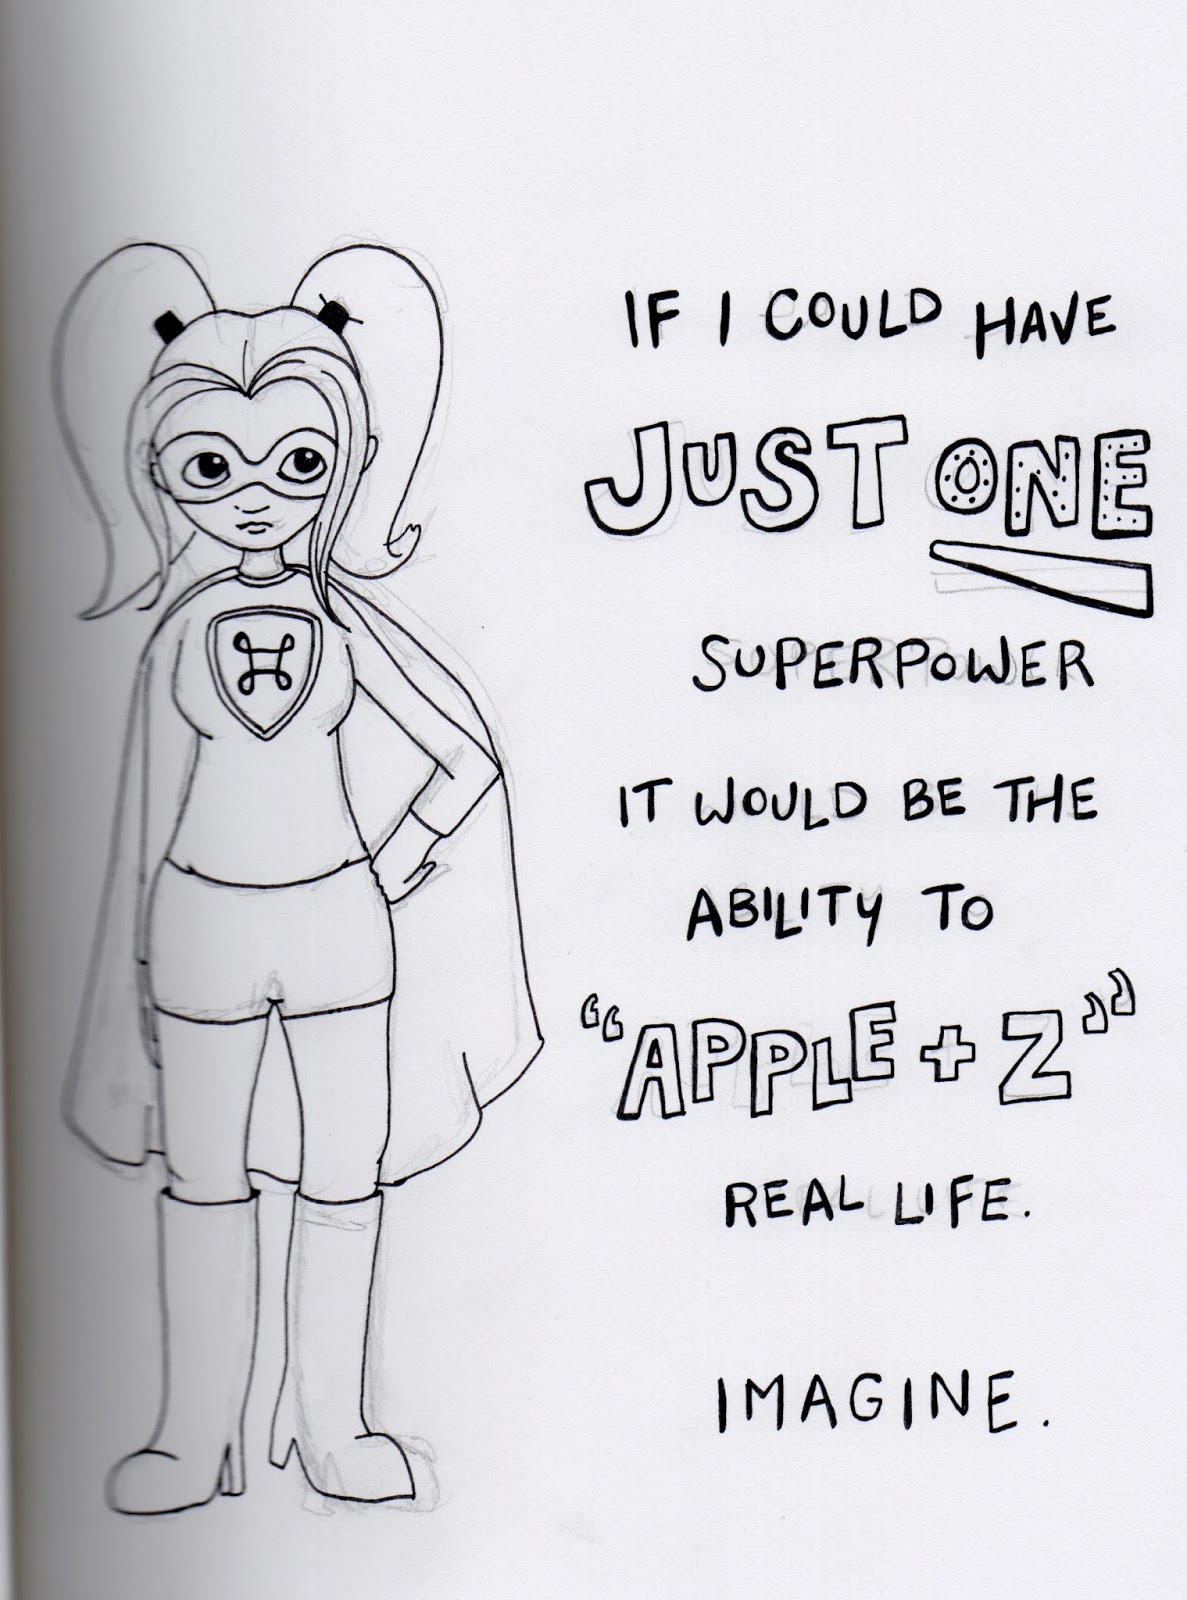 IF I COULD HAVE
JUST ONE
SUPERPOWER
IT WOULD BE THE
ABILITY TO
“APPLE + Z”
REAL LIFE.
IMAGINE.